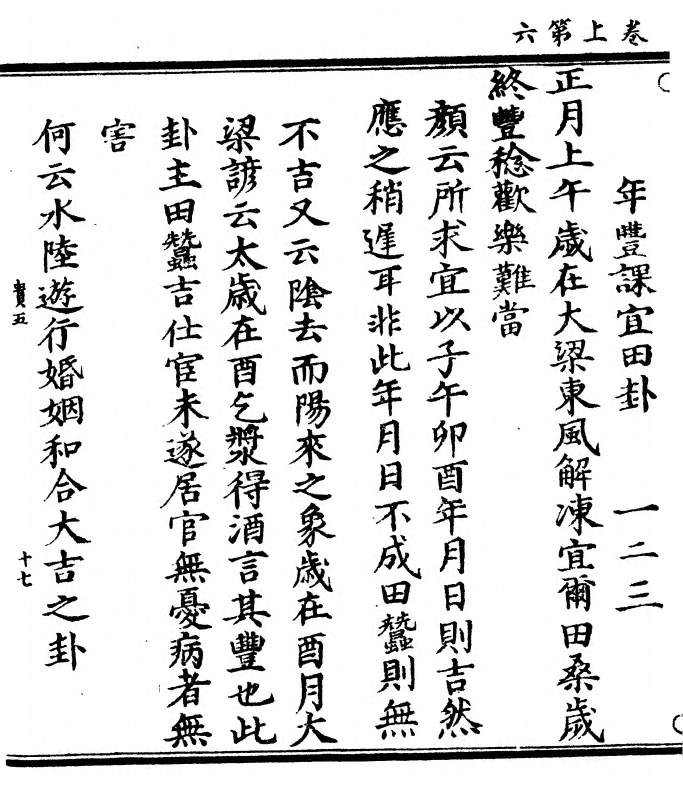 卷上第六
年豐課宜田卦 一二三
正月上午歲在大梁東風解凍宜爾田桑歲
終豐稔歡樂難當
顏云所求宜以子午卯酉年月日則吉然
應之稍遲耳非此年月日不成田蠶則無
不吉又云陰去而陽來之象歲在酉月大
梁諺云太歲在酉乞漿得酒言其豐也此
卦主田蠶吉仕宦未遂居官無憂病者無
害
何云水陸遊行婚姻和合大吉之卦
賓五
十七